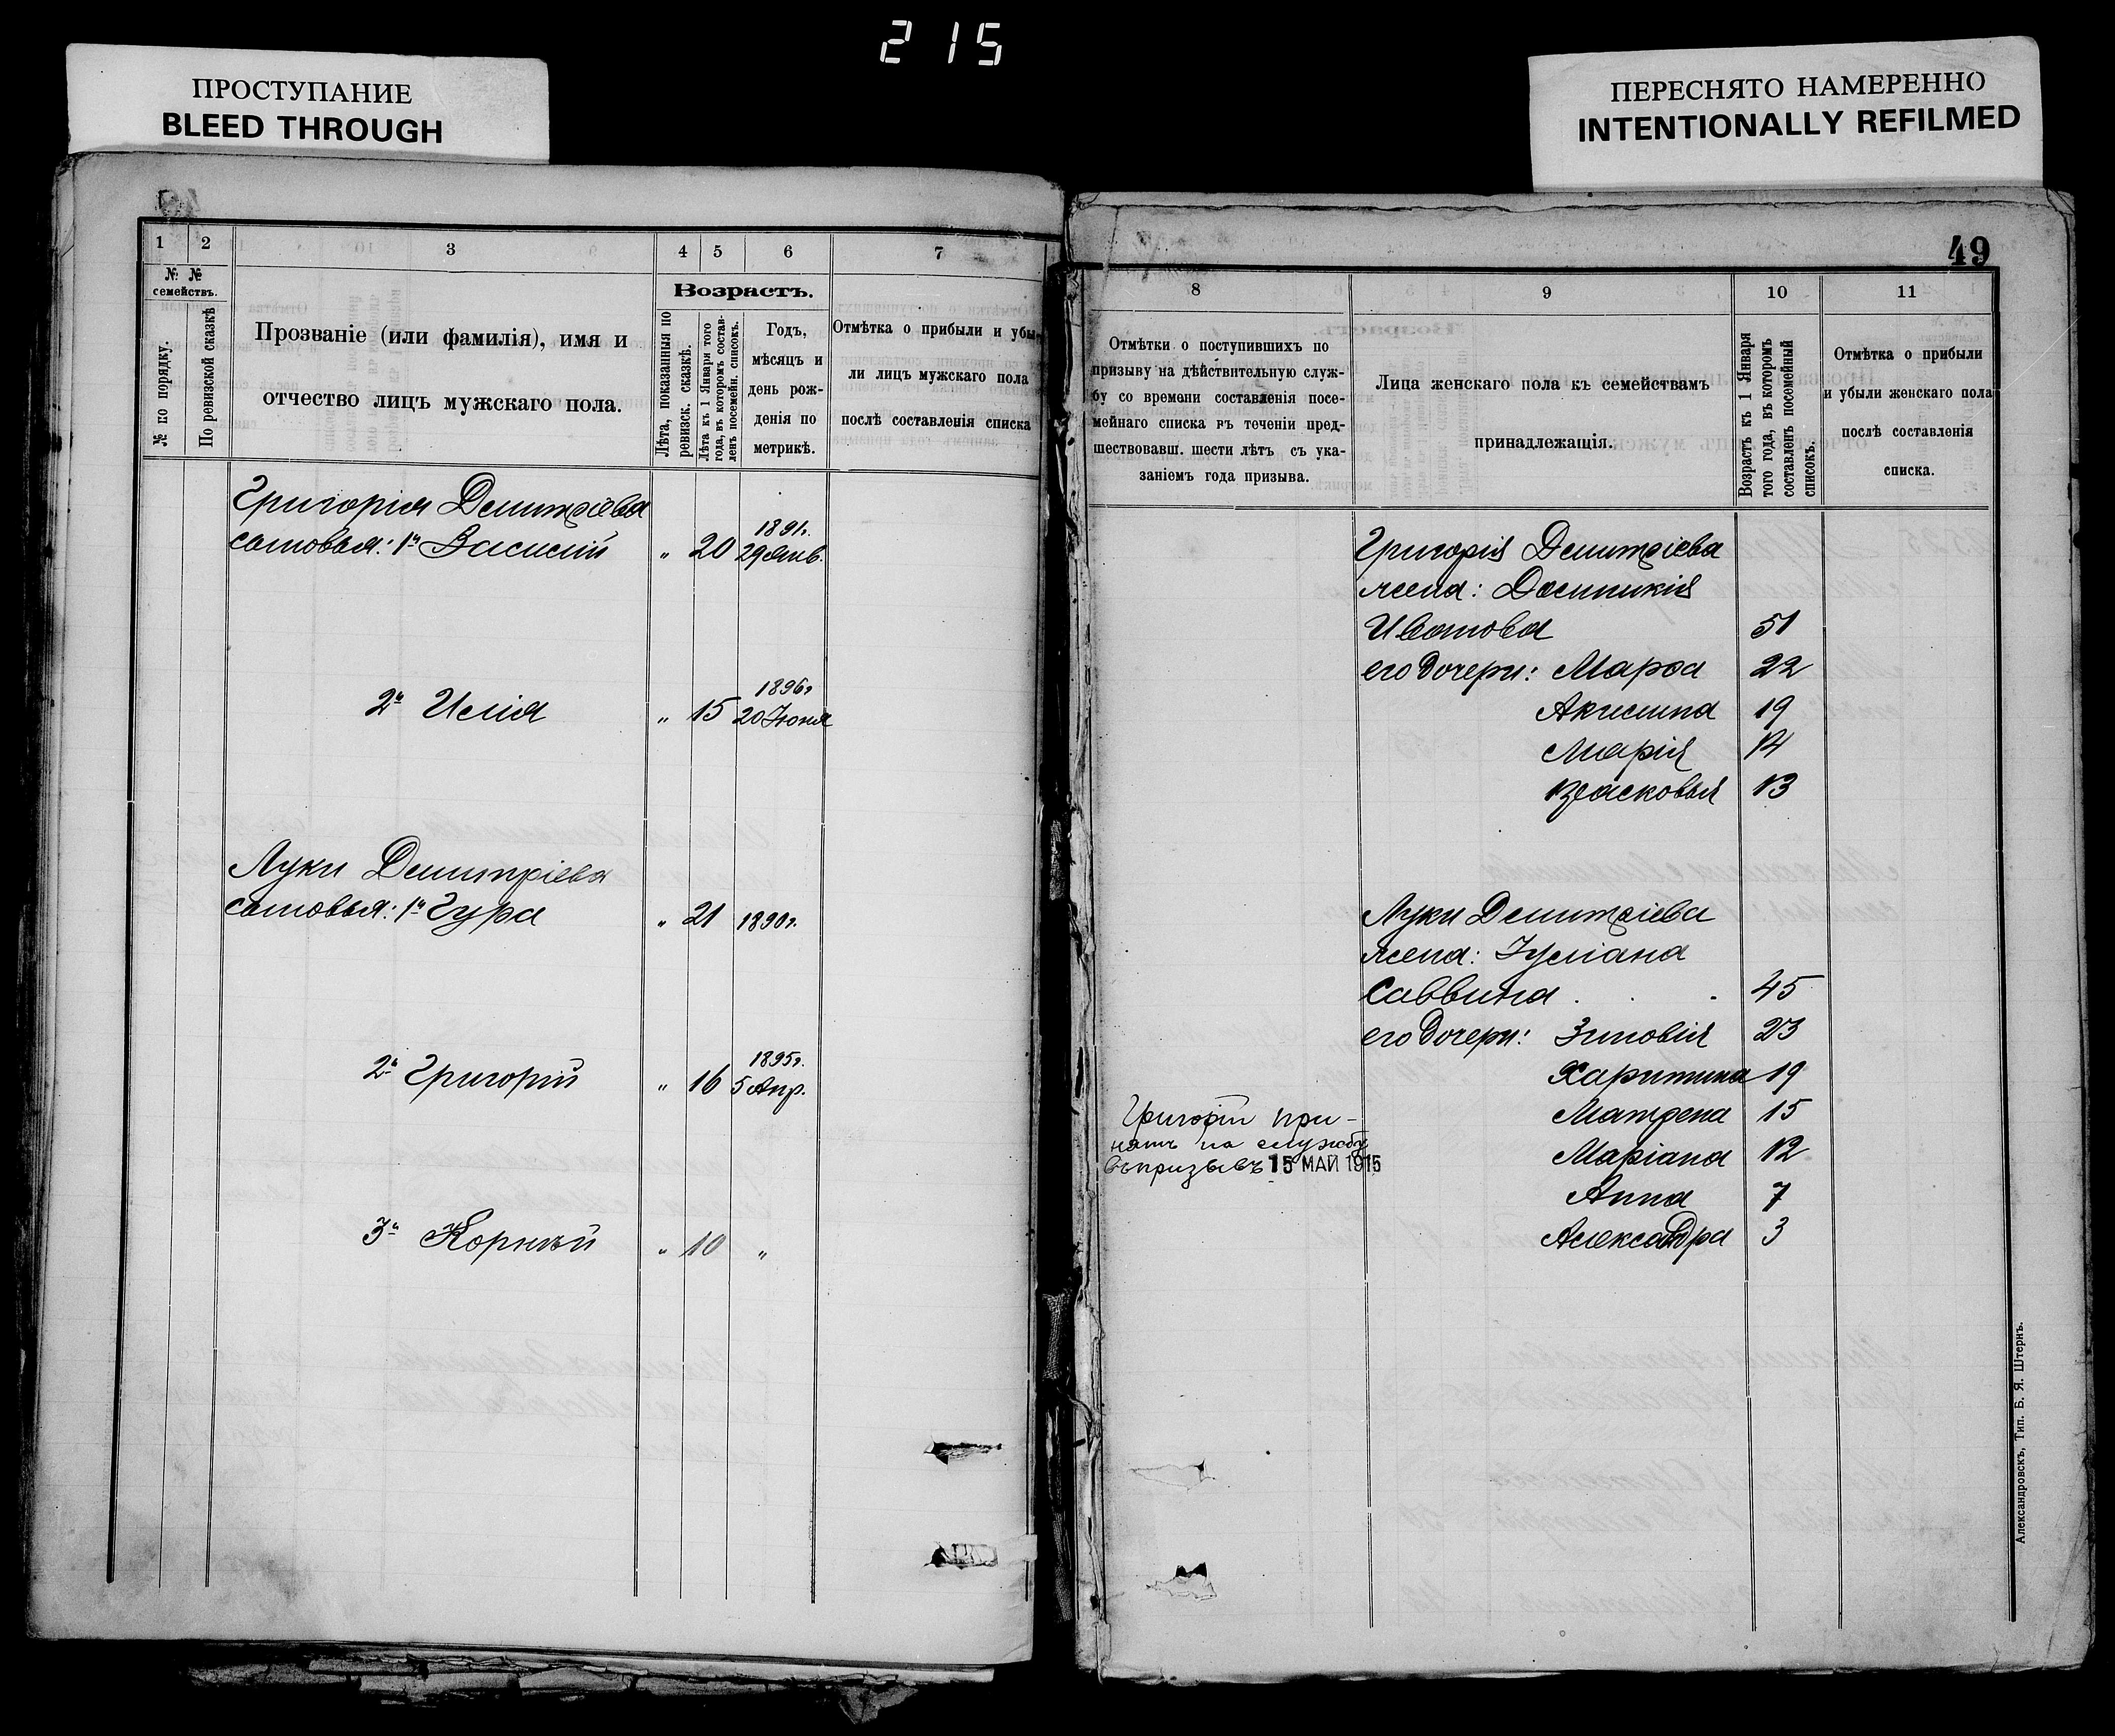 215
ПРОСТУПАНИЕ
BLEED THROUGH
ПЕРЕСНЯТО НАМЕРЕННО
INTENTIONALLY REFILMED
1 2 3 4 5 6 7
№ № семействъ.
№ по порядку.
По ревизской сказкѣ
Прозваніе (или фамилія), имя и
отчество лицъ мужскаго пола.
Возрастъ.
Лѣта, показанныя по
ревизск. сказкѣ.
Лѣта къ 1 Января того
года, въ которомъ состав-
ленъ посемейн. списокъ.
Годъ,
мѣсяцъ и
день рож-
денія по
метрикѣ.
Отмѣтка о прибыли и убы-
ли лицъ мужскаго пола
послѣ составленія списка
Григорія Демитріева
сыновья: 1й Василій " 20 1891г. 29 Янв.
2й Илія " 15 1896г 20 Юоня
Луки Демитріева
сыновья: 1й Гура " 21 1890г.
2й Григорій " 16 1895г. 5 Апр.
3й Корнѣй " 10 "
49
8 9 10 11
Отмѣтки о поступившихъ по
призыву на дѣйствительную служ-
бу со времени составленія посе-
мейнаго списка въ теченіи пред-
шествовавш. шести лѣтъ съ ука-
заніемъ года призыва.
Лица женскаго пола къ семействамъ
принадлежащія.
Возрастъ къ 1 Января
того года, въ которомъ
составленъ посемейный
списокъ.
Отмѣтка о прибыли
и убыли женскаго пола
послѣ составленія
списка.
Григорія Демитріева
жена: Домникія
Иванова 51
его дочери: Марѳа 22
Акилина 19
Марія 14
Прасковья 13
Луки Демитріева
жена: Іуліана
Саввина 45
его дочери: Зиновія 23
Харитина 19
Матрена 15
Маріана 12
Анна 7
Александра 3
Григорій при-
нятъ на службу
въ призывъ 15 МАЙ 1915
Александровскъ, Тип. Б. Я. Штернъ.